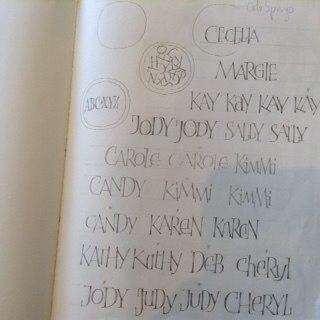 CECELIA
MARGIE
KAY KAY KAY KAY
ABCXYZ
JODY JODY SALLY SALLY
CAROLE CAROLE KiMMi
CANDY KiMMi KiMMi
CANDY KAREN KAREN
KATHY KATHY DEB Cheryl
JODY JUDY JUDY CHERYL